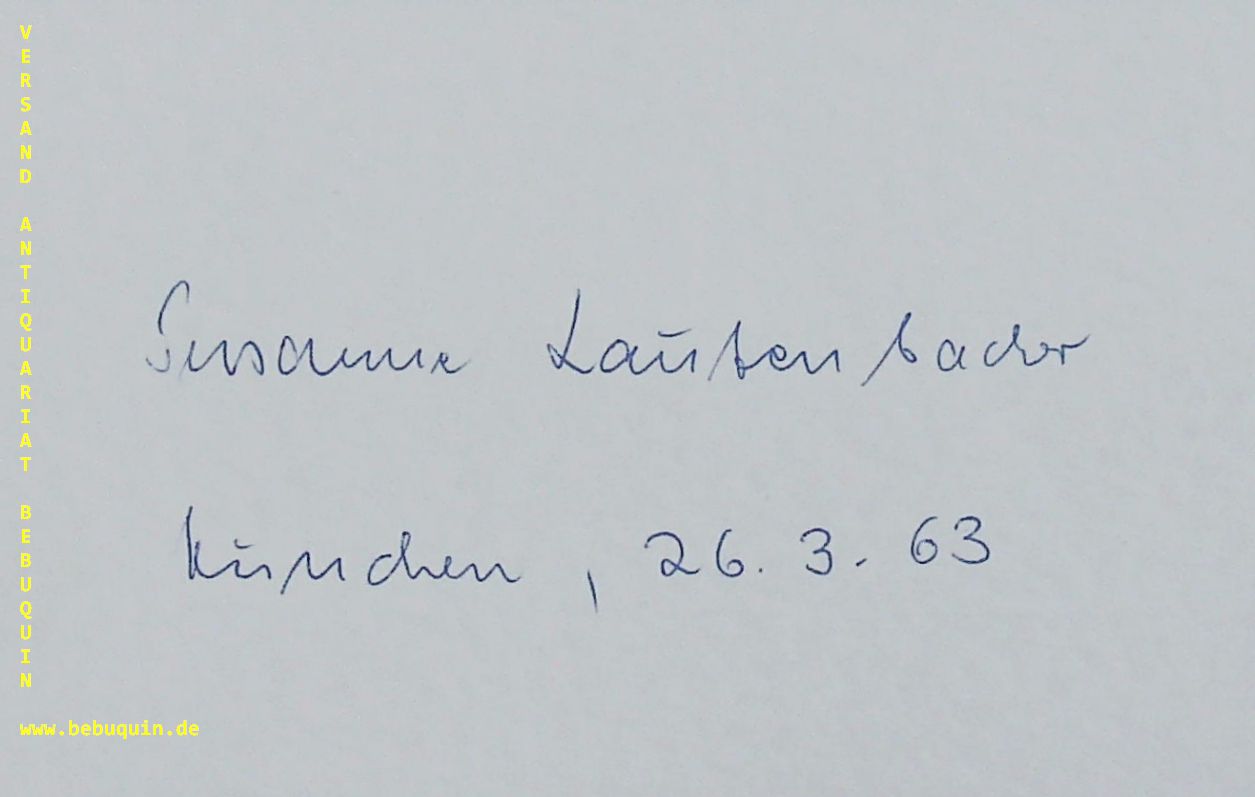 VERSAND ANTIQUARIAT BEBUQUIN
Susanne Lautenbacher
München, 26. 3. 63
www.bebuquin.de